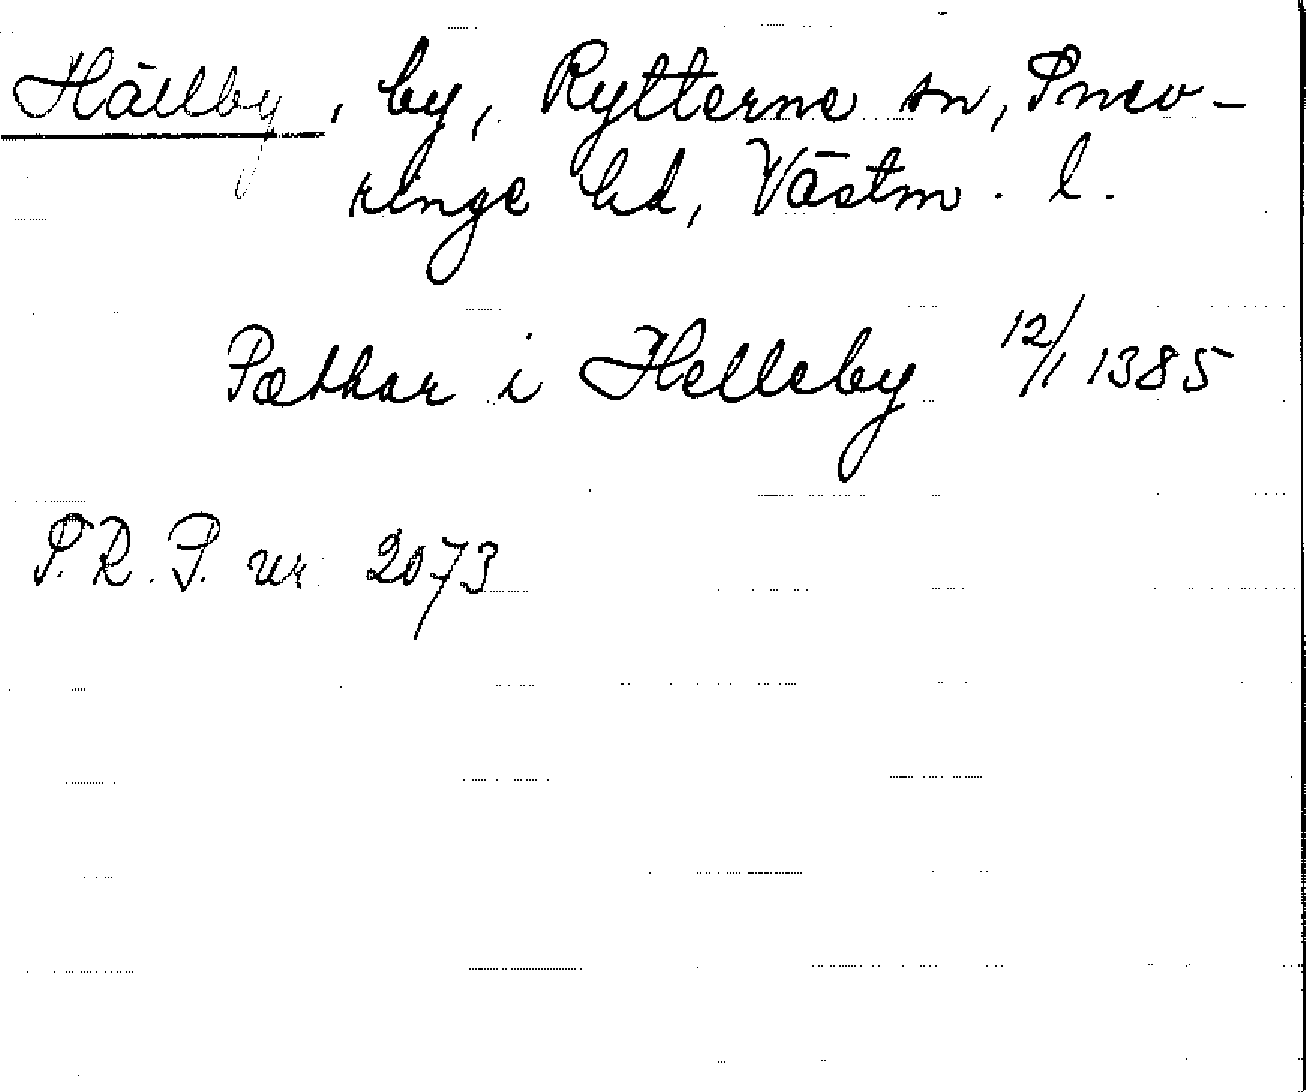 Hällby, by, Rytterne sn, Snev-
ringe hd, Västm. l.
Pæthar i Helleby 12/1 1385
S.R.P. nr 2073